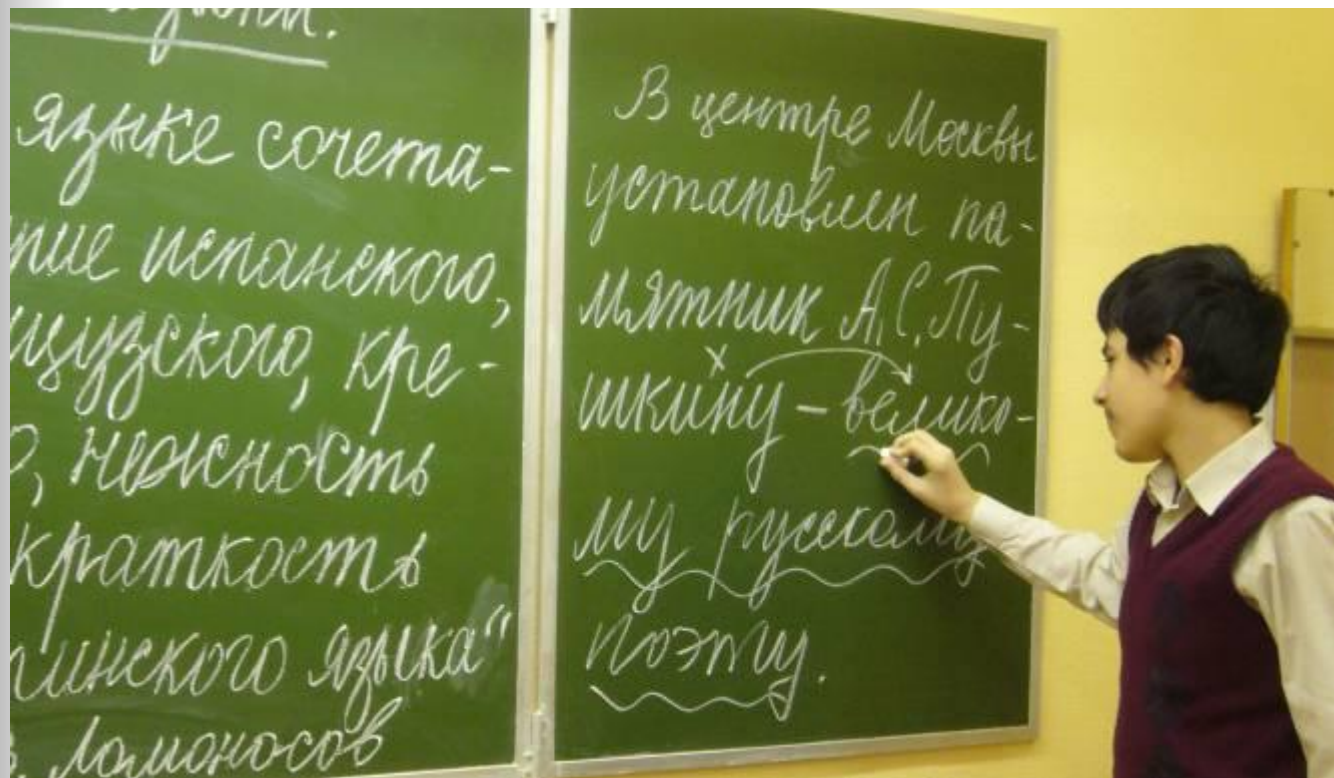 языке сочета-
испанского,
кре-
нежность
краткость
языка"
Ломоносов
В центре Москвы
установлен па-
мятник А.С.Пу-
шкину – велико-
му русскому
поэту.